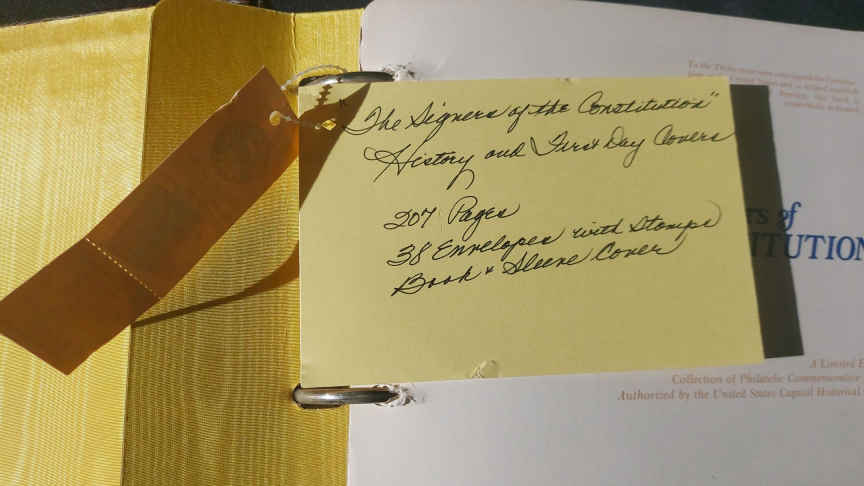 "The Signers of the Constitution"
History and First Day Covers
207 Pages
38 Envelopes with Stamps
Book & Sleeve Cover
RS of
ITUTION
A Limited E
Collection of Philatelic Commemorative
Authorized by the United States Capitol Historical